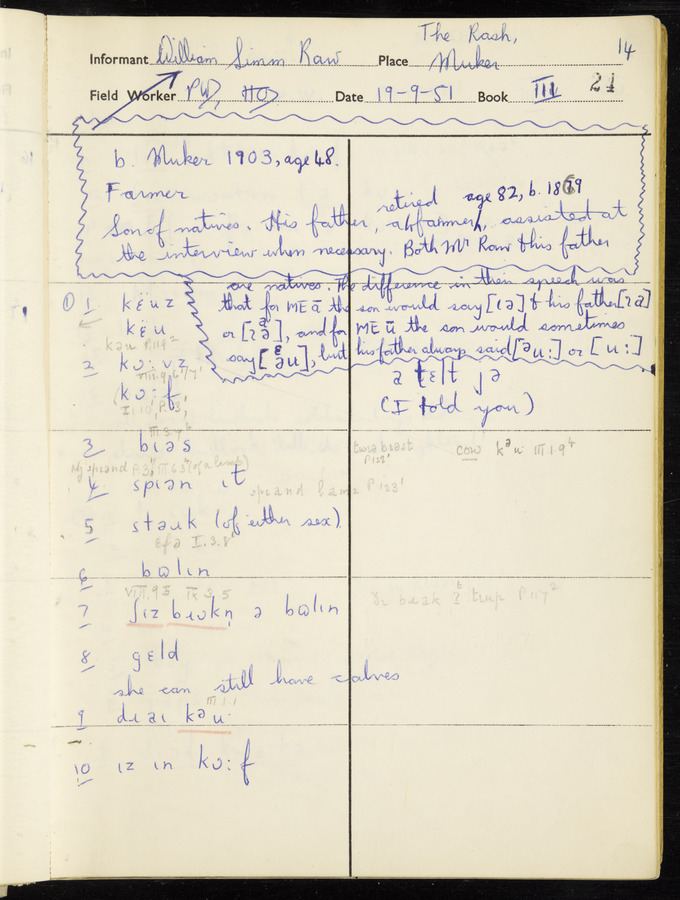 The Rash,
Informant William Simm Raw Place Muker 14
Field Worker PW, HO Date 19-9-51 Book III 24
b. Muker 1903, age 48.
Farmer
retired age 82, b. 1869
Son of natives. His father, a farmer, assisted at
the interview when necessary. Both Mr Raw & his father
are natives. The difference in their speech was
that for ME ā the son would say [ɪə] & his father [ɪa]
or [ɪə], and for ME ū the son would sometimes
say [əu], but his father always said [əu:] or [u:]
1 kɛ̈uz
kɛ̈u
kəu P.119²
2 kʊ:vz
kʊ:f
a tɛlt jə
(I told you)
3 bɪəs
cow kəu III.1.9⁴
4 spɪən ɪt
spɪənd P.123'
5 stəuk (of either sex)
I.3.8'
6 bʊlɪn
VIII.9.5 IX.3.5
7 ʃɪz bɪʊkn̩ ə bʊlɪn
P.117²
8 gɛld
she can still have calves
III.1.1
9 dɪəɪ kəu
10 ɪz ɪn kʊ:f